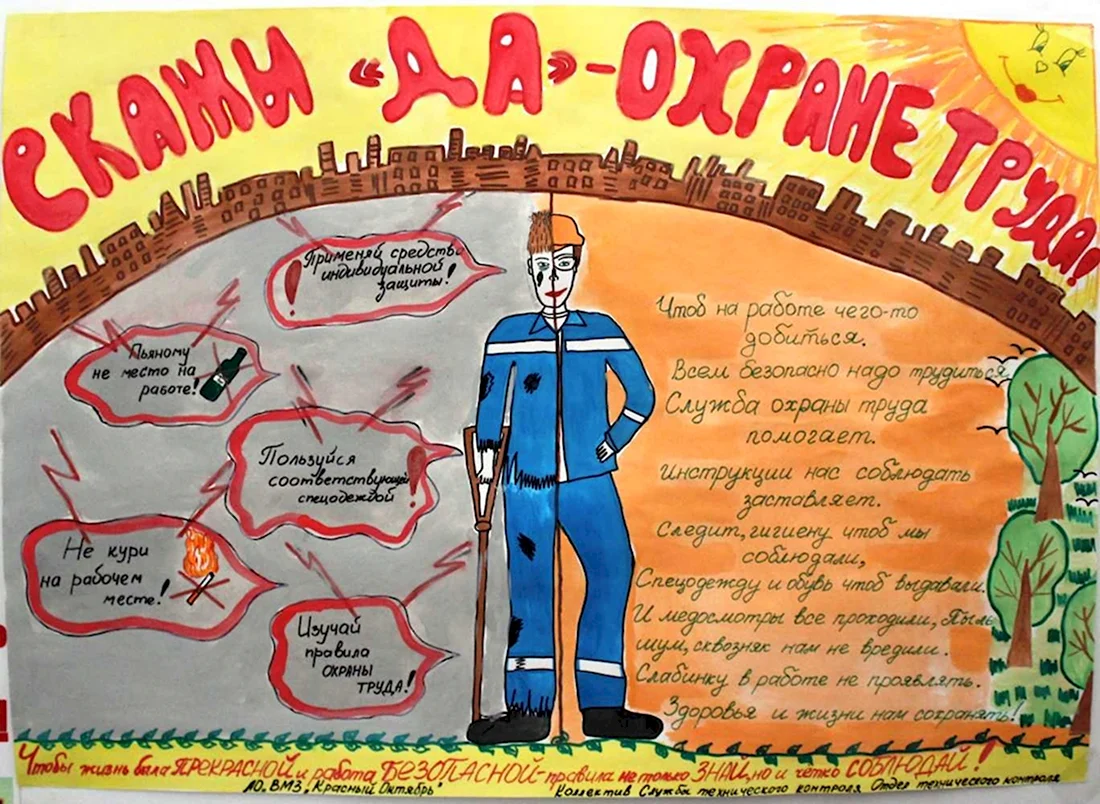 СКАЖИ «ДА»-ОХРАНЕ ТРУДА!
Применяй средства
индивидуальной
защиты!
Пьяному
не место на
работе!
Пользуйся
соответствующей
спецодеждой
Не кури
на рабочем
месте!
Изучай
правила
ОХРАНЫ
ТРУДА!
Чтоб на работе чего-то
добиться.
Всем безопасно надо трудиться.
Служба охраны труда
помогает.
Инструкции нас соблюдать
заставляет.
Следит, гигиену чтоб мы
соблюдали,
Спецодежду и обувь чтоб выдавали.
И медосмотры все проходили, Пыль
шум, сквозняк нам не вредили.
Слабинку в работе не проявлять.
Здоровья и жизни нам сохранять!
Чтобы жизнь была ПРЕКРАСНОЙ и работа БЕЗОПАСНОЙ-правила не только ЗНАЙ, но и четко СОБЛЮДАЙ!
АО. ВМЗ „Красный Октябрь" Коллектив Службы технического контроля Отдел технического контроля